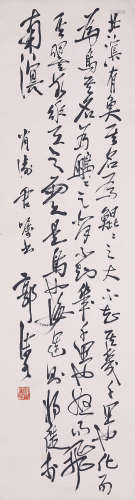 北溟有魚其名為鯤々之大不知其幾千里也化而
為鳥其名為鵬々之背不知其幾千里也怒而飛
其翼若垂天之雲是鳥也海運則將徙於
南溟
郭沫若